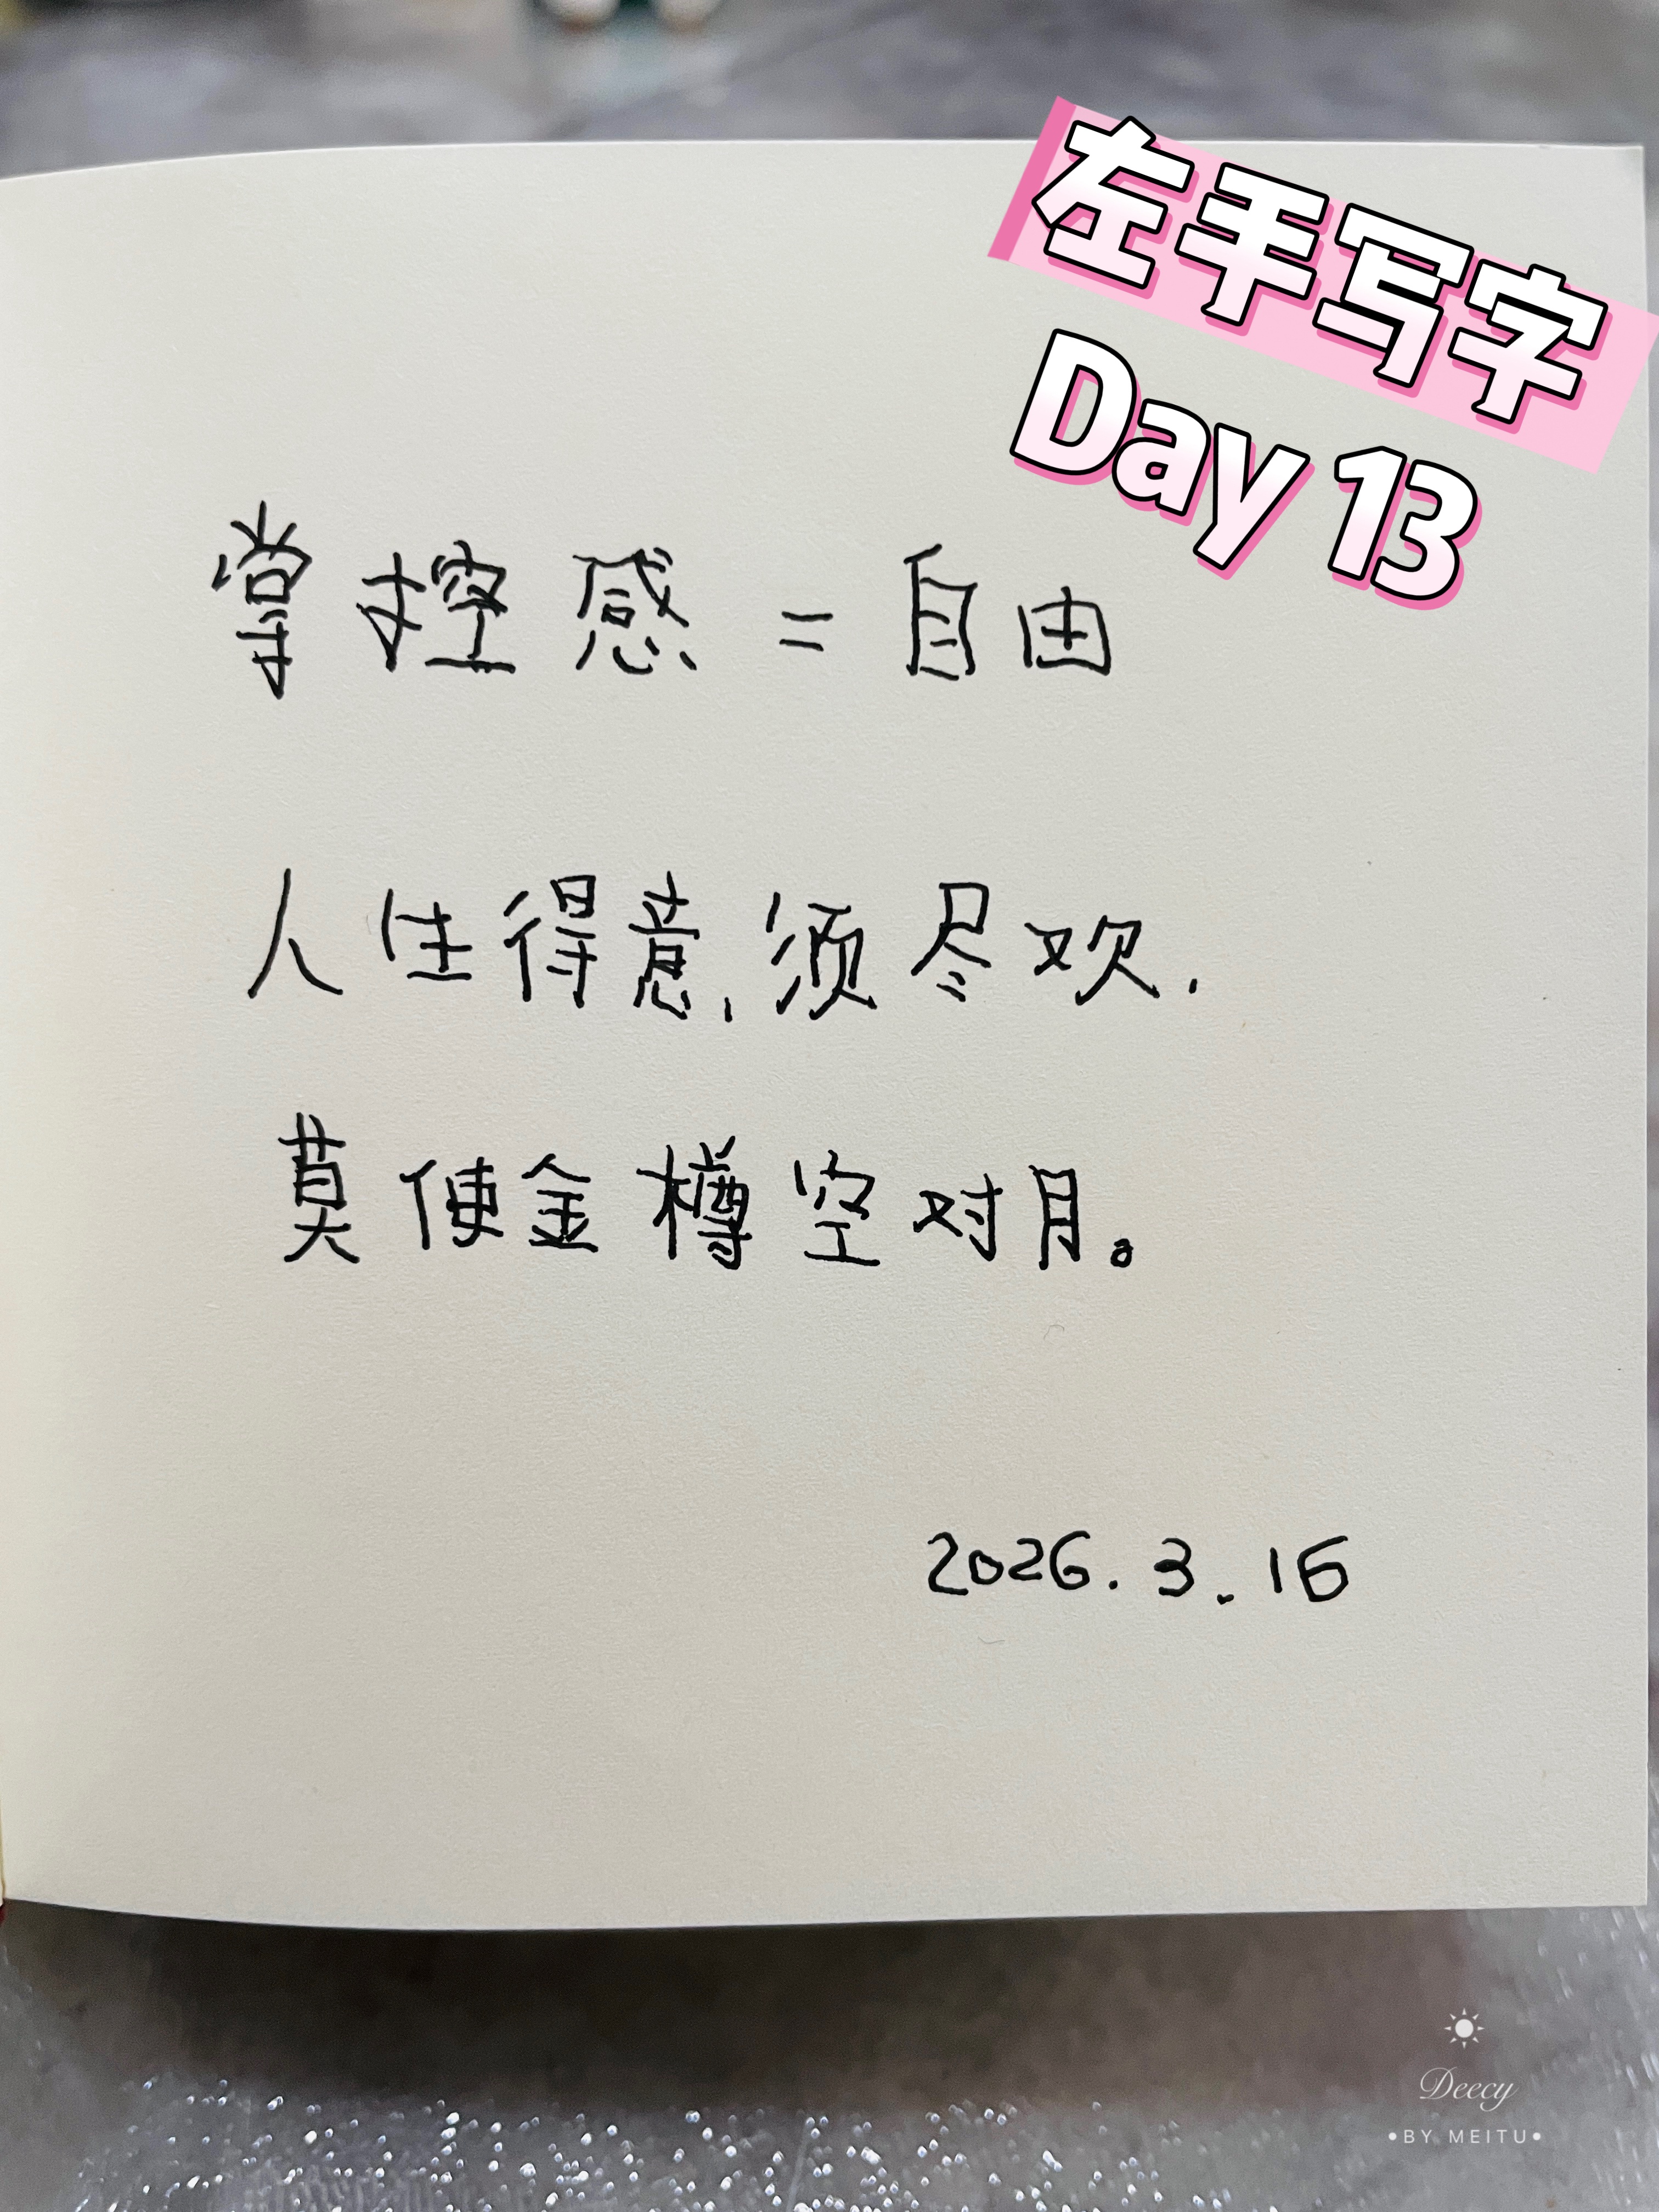 左手写字
Day 13
掌控感=自由
人生得意,须尽欢.
莫使金樽空对月。
2026.3.16
Deecy
•BY MEITU•